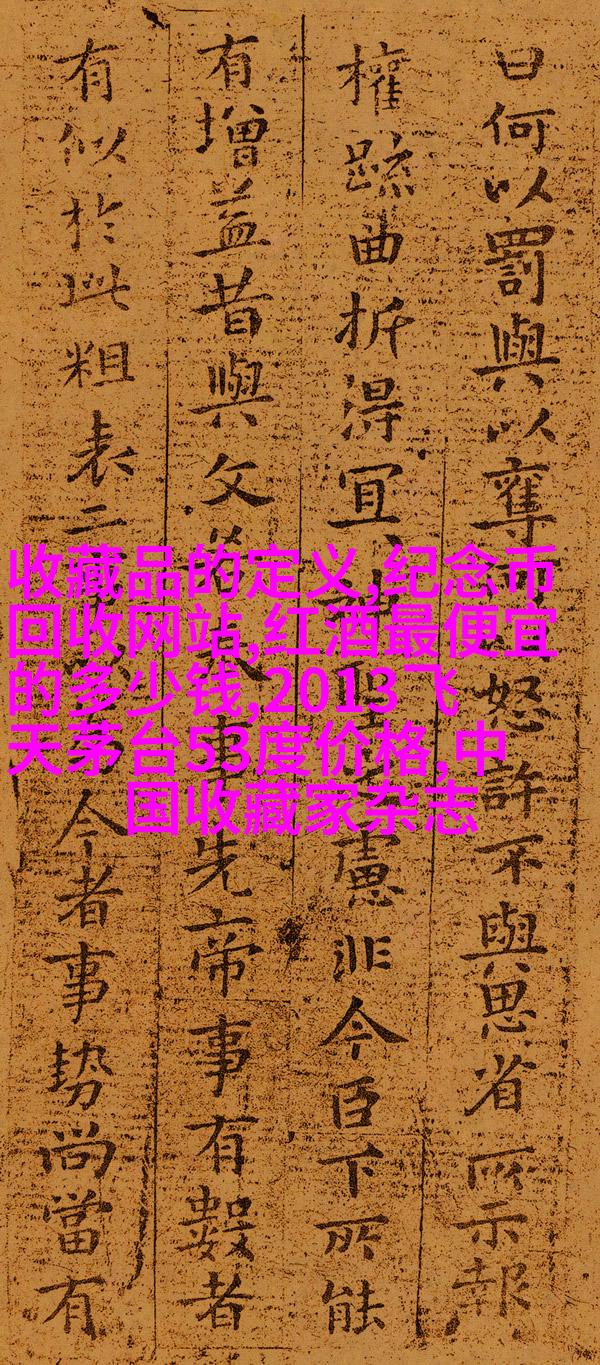 曰何以罰與以奪何以怒許不與思省所示報
權疏曲折得宜宜神聖之慮非今臣下所能
有增益昔與文若奉事先帝事有數者
有似於此粗表二今者事勢尚當有
收藏品的定义,纪念币
回收网站,红酒最便宜
的多少钱,2013飞
天茅台53度价格,中
国收藏家杂志